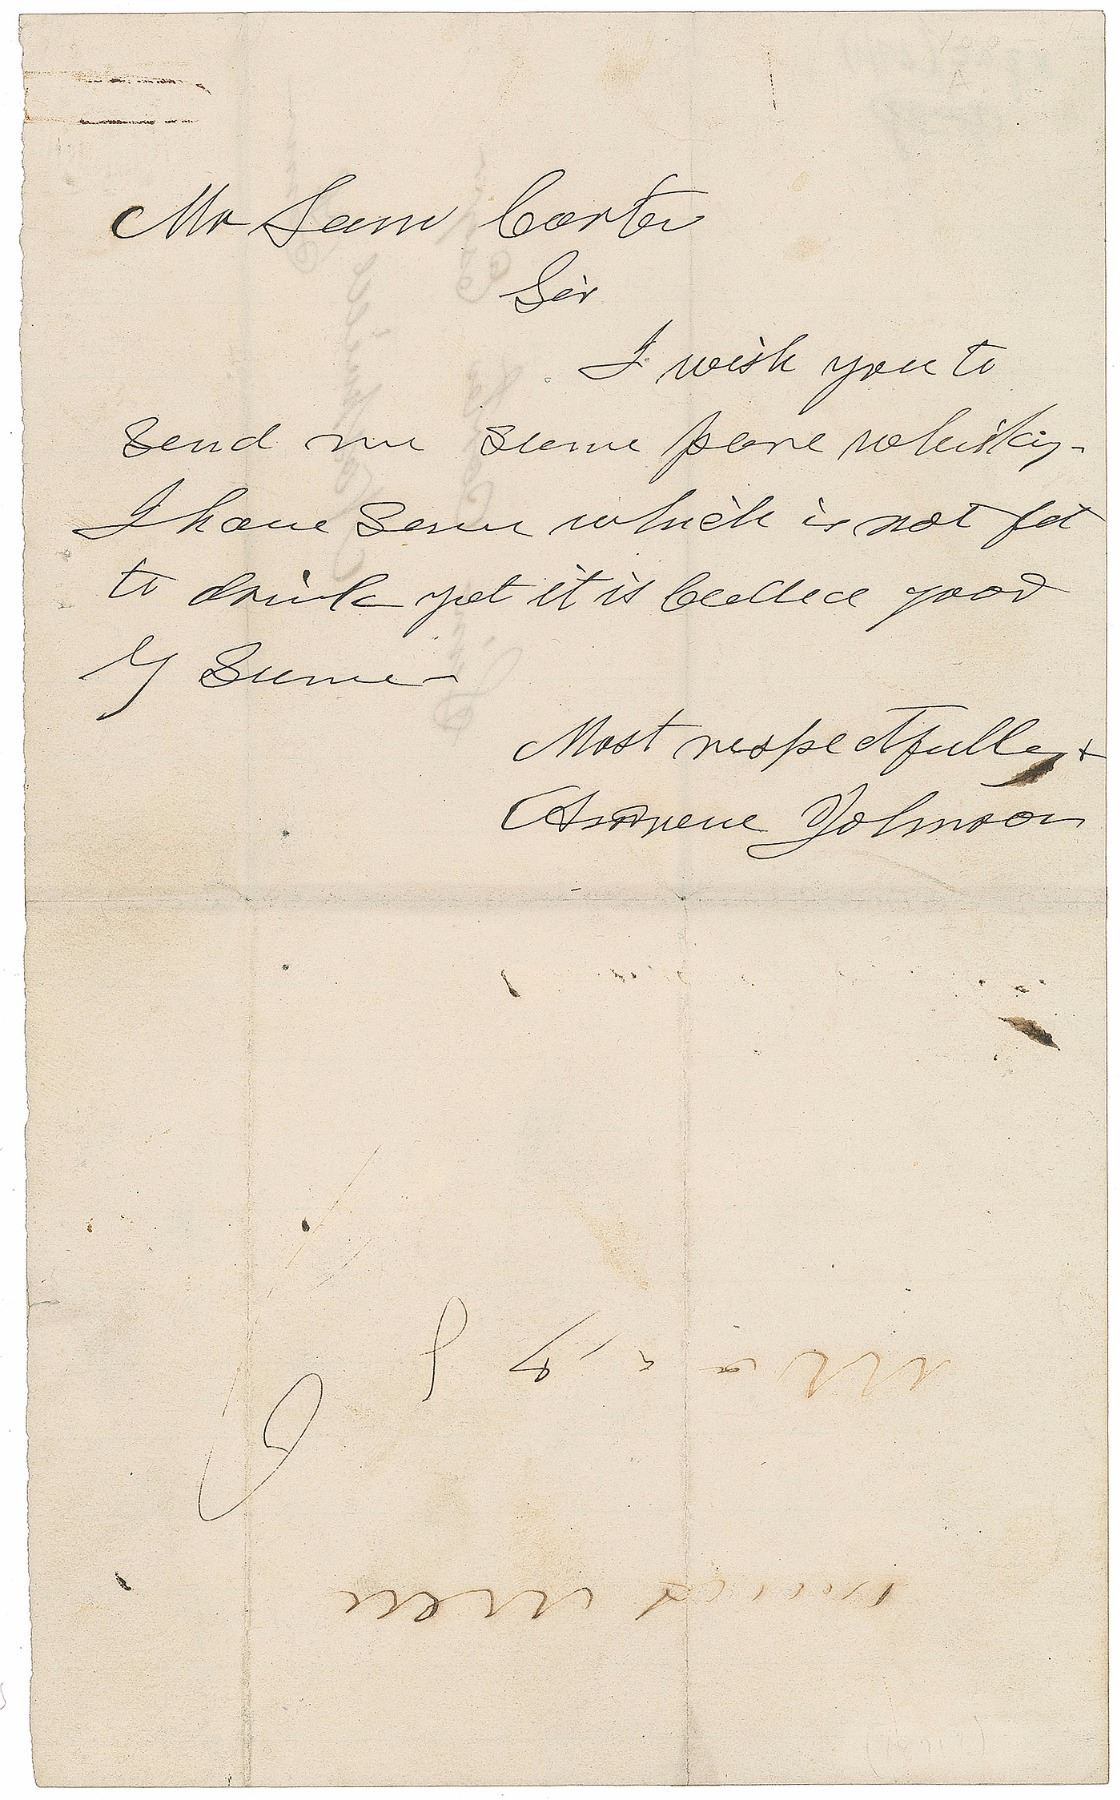 Mr Sam Carter
Sir
I wish you to
send me some pure whisky-
I have some which is not fit
to drink yet it is called good
by some-
Most respectfully +
Andrew Johnson